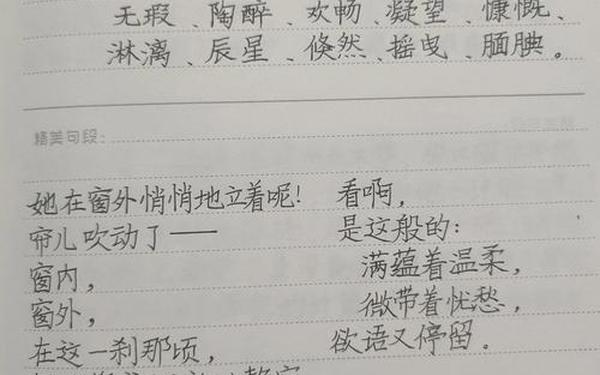 无瑕、陶醉、欢畅、凝望、慷慨、
淋漓、辰星、倏然、摇曳、腼腆。
精美句段:
她在窗外悄悄地立着呢!
帘儿吹动了——
窗内,
窗外,
在这一刹那顷,
看啊,
是这般的:
满蕴着温柔,
微带着忧愁,
欲语又停留。